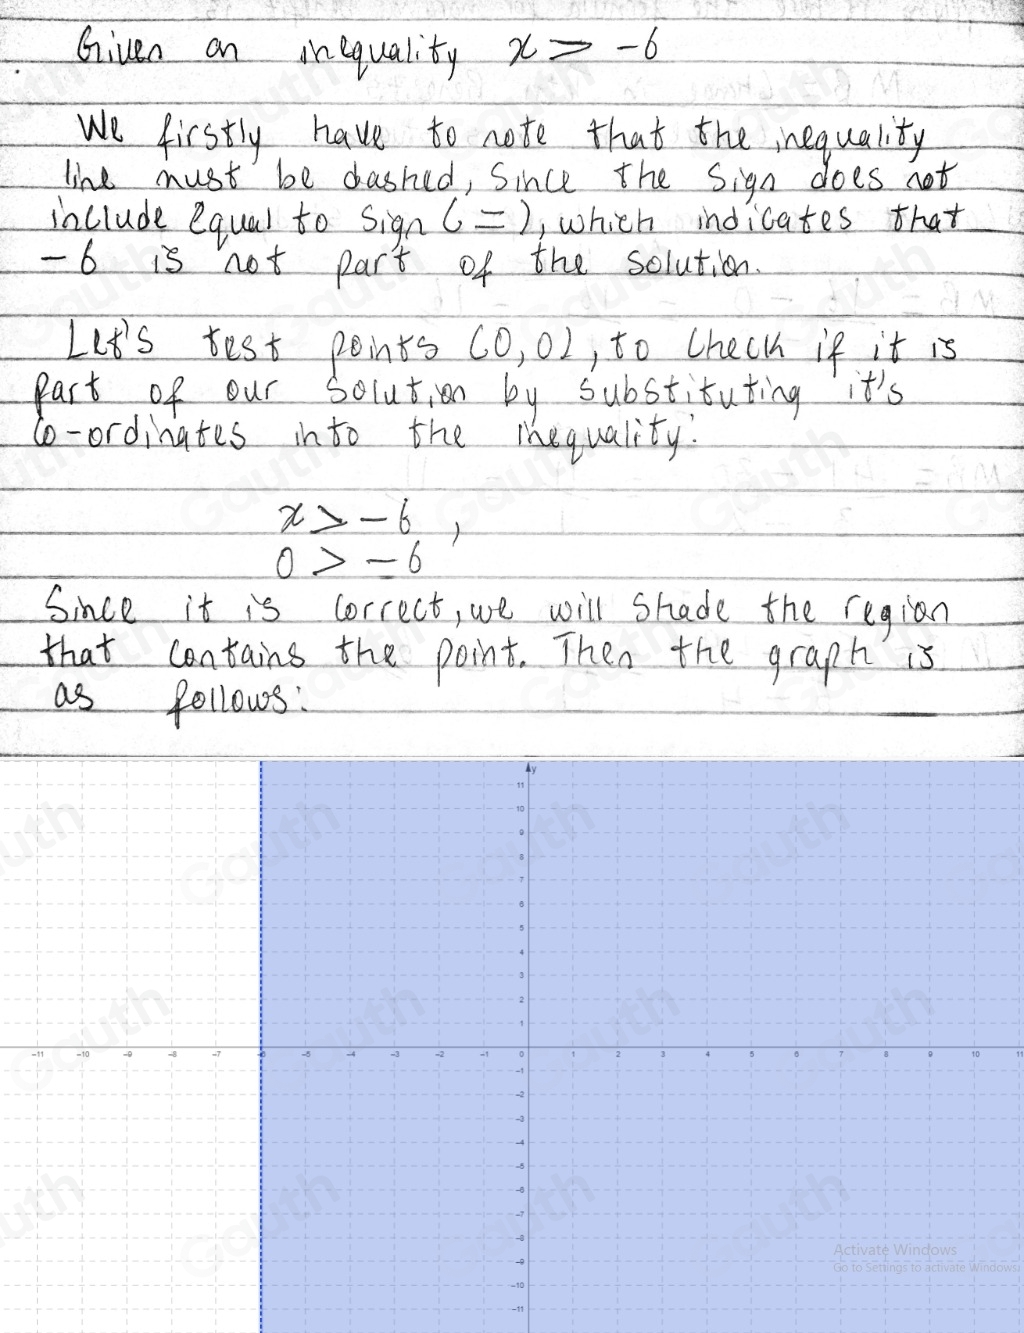 Given an inequality x > -6
We firstly have to note that the inequality
line must be dashed, Since the Sign does not
include Equal to Sign (=), which indicates that
-6 is not part of the solution.
Let's test points (0,0), to Check if it is
Part of our Solution by substituting it's
Co-ordinates into the inequality:
x > -6,
0 > -6
Since it is Correct, we will Shade the region
that Contains the point. Then the graph is
as follows:
y
11
10
9
8
7
6
5
4
3
2
1
-11 -10 -9 -8 -7 -6 -5 -4 -3 -2 -1 0 1 2 3 4 5 6 7 8 9 10 11
-1
-2
-3
-4
-5
-6
-7
-8
-9
-10
-11
Activate Windows
Go to Settings to activate Windows
Gauth